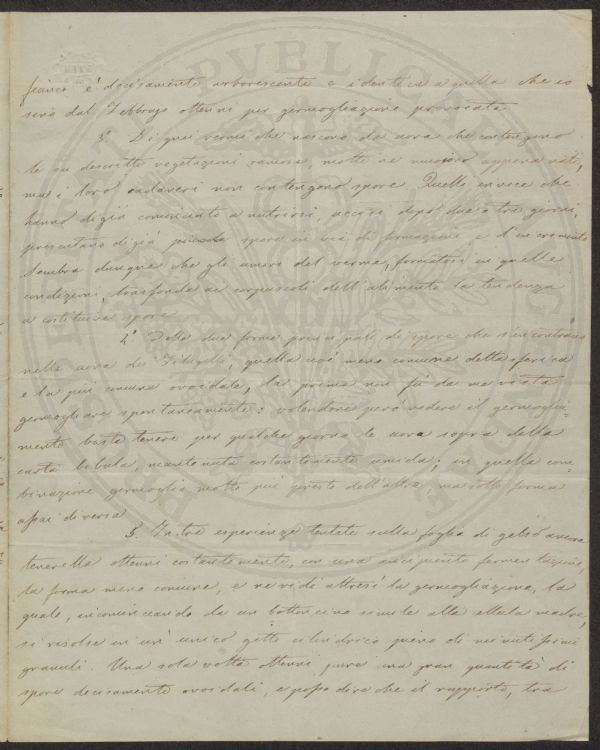 fianco è decisamente arborescente e identica a quella che es
sere dal Febbrajo ottenni per germogliazione provocata.
3° Di quei vermi che nascono da uova che contengono
le su descritte vegetazioni ramose molti ne muojono appena nati,
ma i loro cadaveri non contengono spore. Quelli invece che
hanno digià cominciato a nutrirsi, uccisi dopo due o tre giorni,
presentano digià piccole spore in via di formazione e d'incremento
Sembra dunque che gli umori del verme, formatosi in quelle
condizioni, trasfonda ai corpuscoli dell'alimento la tendenza
a costituire spore.
4° Delle due forme principali di spore che s'incontrano
nelle uova dei Filugelli, quella cioè meno comune detta sferica
e la più comune ovoidale, la prima non fù da me vista
germogliare spontaneamente: volendone però vedere il germoglia-
mento basta tenere per qualche giorno le uova sopra della
carta bibula, mantenuta costantemente umida; in quella com
binazione germoglia molto più presto dell'altra ma sotto forma
assai diversa.
5. In tre esperienze tentate sulla foglia di gelso ancora
tenerella ottenni costantemente, con una incipiente fermentazione,
la forma meno comune, e ne vidi altresì la germogliazione, la
quale, incominciando da un bottoncino simile alla cellula madre,
si risolve in un' unico getto cilindrico pieno di minutissimi
granuli. Una sola volta ottenni pure una gran quantità di
spore decisamente ovoidali, e posso dire che il rapporto, tra